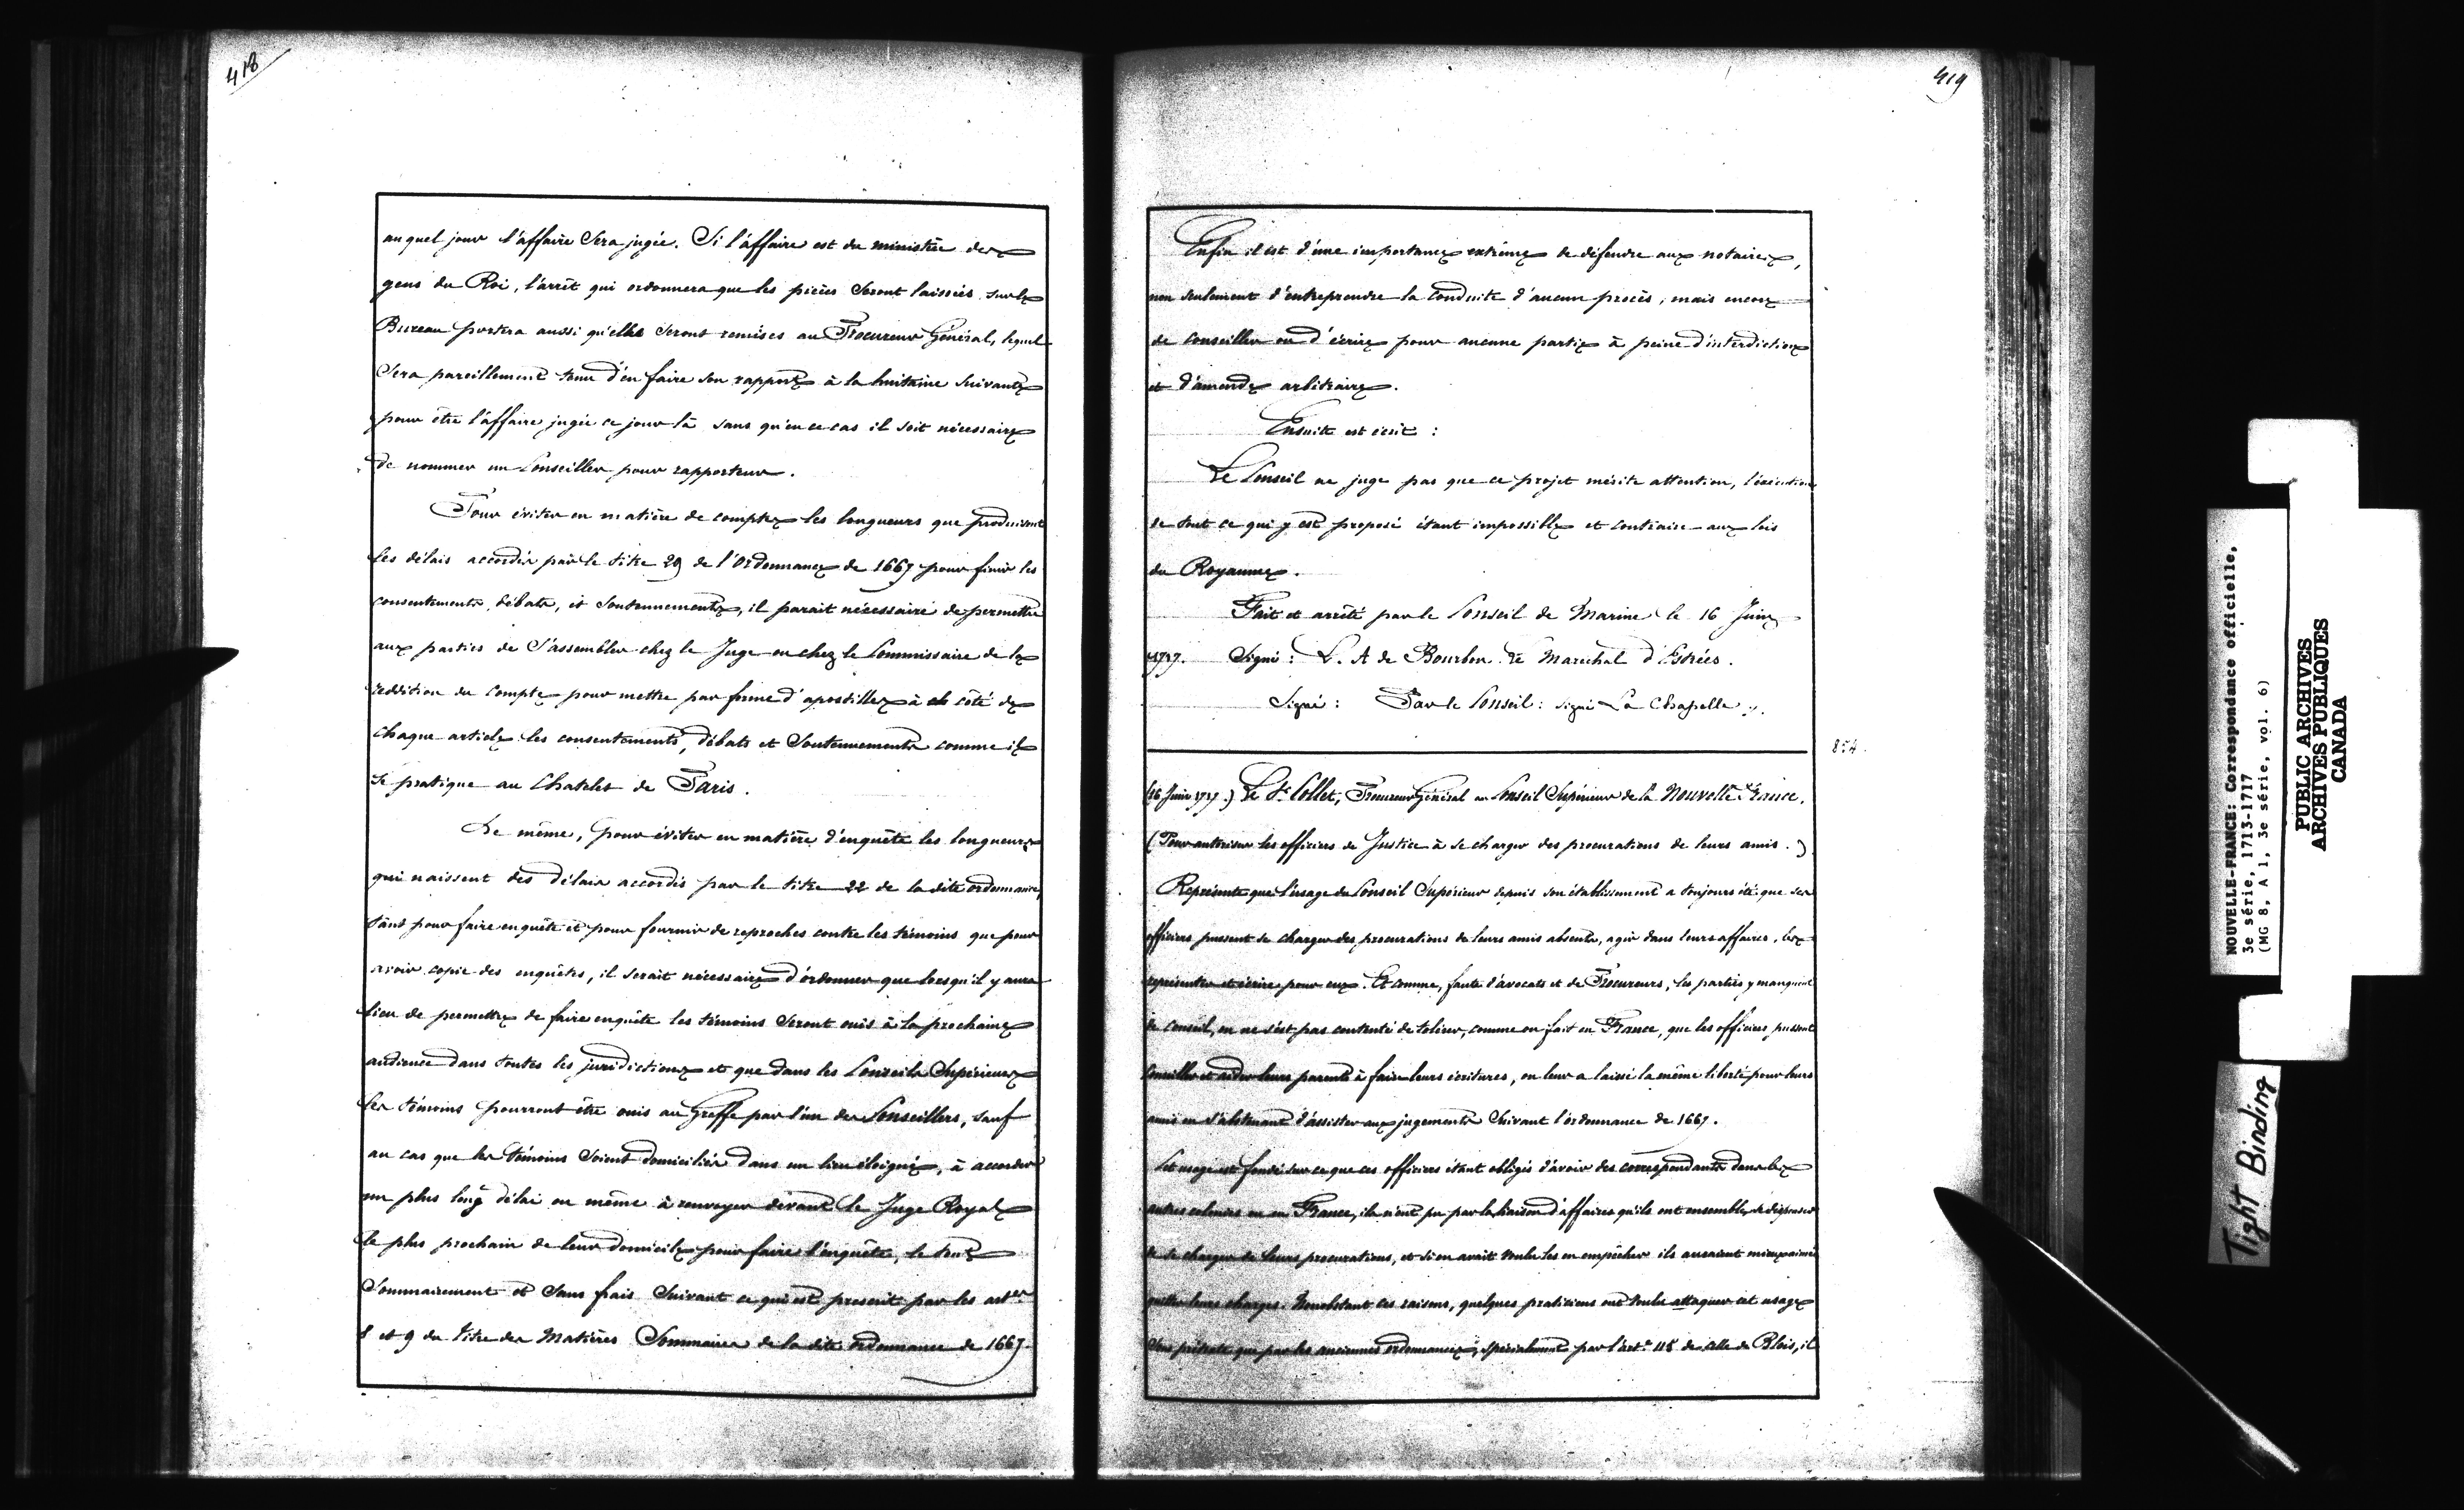 418
auquel jour l'affaire Sera jugée. Si l'affaire est du ministère des
gens du Roi, l'arrêt qui ordonnera que les pièces Seront laissées sur le
Bureau portera aussi qu'elles Seront remises au Procureur Général, lequel
Sera pareillement tenu d'en faire son rapport à la huitaine Suivante
pour être l'affaire jugée ce jour là sans qu'en ce cas il soit nécessaire
de nommer un Conseiller pour rapporteur.
Pour éviter en matière de comptes les longueurs que produisent
les délais accordés par le titre 29 de l'Ordonnance de 1667 pour finir les
consentements, débats, et Soutennements, il parait nécessaire de permettre
aux parties de S'assembler chez le Juge ou chez le Commissaire de la
reddition du Compte pour mettre par forme d'apostilles à côté de
chaque article les consentements, débats et Soutennements comme il
se pratique au Chatelet de Paris.
De même, pour éviter en matière d'enquête les longueurs
qui naissent des délais accordés par le titre 22 de la dite ordonnance,
tant pour faire enquête et pour fournir de reproches contre les témoins que pour
avoir copie des enquêtes, il serait nécessaire d'ordonner que lorsqu'il y aura
lieu de permettre de faire enquête les témoins Seront ouis à la prochaine
audience dans toutes les juridictions et que dans les Conseils Supérieurs
les témoins pourront être ouis au Greffe par l'un des Conseillers, sauf
au cas que les témoins Soient domiciliés dans un lieu éloigné, à accorder
un plus long délai ou même à renvoyer devant le Juge Royal
le plus prochain de leur domicile pour faire l'enquête, le tout
Sommairement et Sans frais Suivant ce qui est prescrit par les artes
8 et 9 du titre des Matières Sommaires de la dite Ordonnance de 1667.
419
Enfin il est d'une importance extrême de défendre aux notaires,
non seulement d'entreprendre la Conduite d'aucun procès, mais encore
de conseiller ou d'écrire pour aucune partie à peine d'interdiction
et d'amende arbitraire.
Ensuite est écrit :
Le Conseil ne juge pas que ce projet mérite attention, l'exécution
de tout ce qui y est proposé étant impossible et contraire aux lois
du Royaume.
Fait et arrêté par le Conseil de Marine le 16 Juin
1717. Signé : L. A de Bourbon. Le Marechal d'Estrées.
Signé : Par le Conseil : signé La Chapelle
854.
(16 Juin 1717.) Le Sr. Collet, Procureur Général au Conseil Supérieur de la Nouvelle France.
(Pour autoriser les officiers de Justice à se charger des procurations de leurs amis.)
Représente que l'usage du Conseil Supérieur depuis son établissement a toujours été que ses
officiers pussent se charger des procurations de leurs amis absents, agir dans leurs affaires, les
représenter et écrire pour eux. Et comme, faute d'avocats et de Procureurs, les parties y manquent
de conseil, on ne s'est pas contenté de tolérer, comme on fait en France, que les officiers pussent
Conseiller et aider leurs parents à faire leurs écritures, on leur a laissé la même liberté pour leurs
amis en s'abstenant d'assister aux jugements Suivant l'ordonnance de 1667.
Cet usage est fondé sur ce que ces officiers étant obligés d'avoir des correspondants dans les
autres colonies ou en France, ils n'ont pu par la liaison d'affaires qu'ils ont ensemble, se dispenser
de se charger de leurs procurations, et si on avait voulu les en empêcher ils auraient mieux aimé
quitter leurs charges. Nonobstant ces raisons, quelques praticiens ont voulu attaquer cet usage
Sous prétexte que par les anciennes ordonnances, Spécialement par l'art. 115 de celle de Blois, il
NOUVELLE-FRANCE: Correspondance officielle,
3e série, 1713-1717
(MG 8, A 1, 3e série, vol. 6)
PUBLIC ARCHIVES
ARCHIVES PUBLIQUES
CANADA
Tight Binding